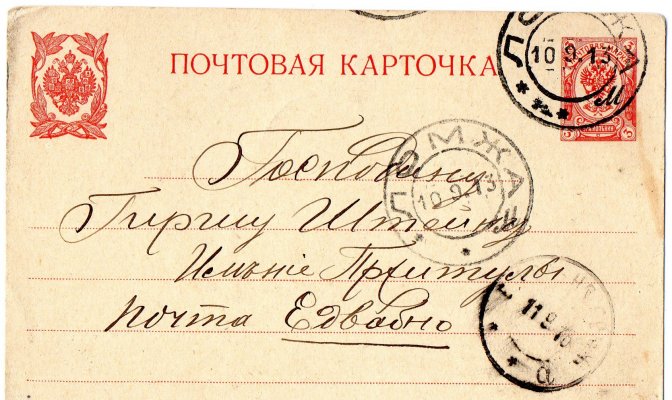 ПОЧТОВАЯ КАРТОЧКА
ЛОМЖА
10.9.13
м
Господину
Гиршу Штейну
ЛОМЖА
10.9.13
м
Имѣніе Пржитулы
почта Едвабно
11.9.13
а